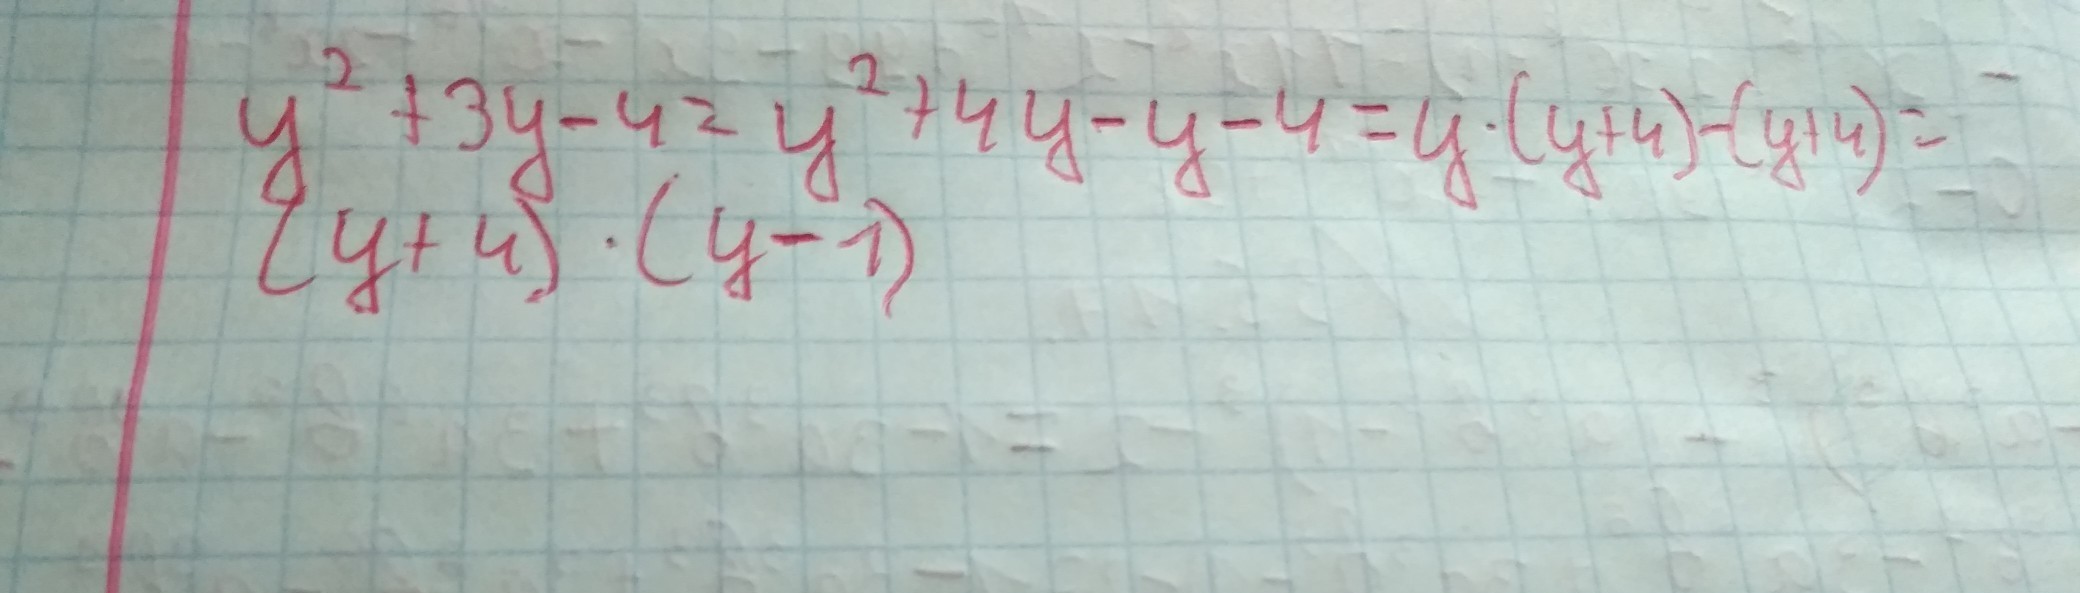 y² + 3y - 4 = y² + 4y - y - 4 = y · (y+4) - (y+4) =
(y+4) · (y-1)